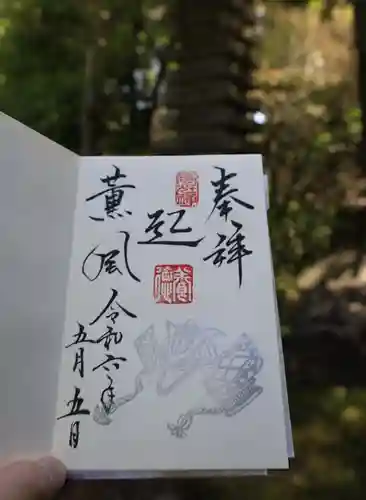 奉拝
薫風
令和六年
五月五日